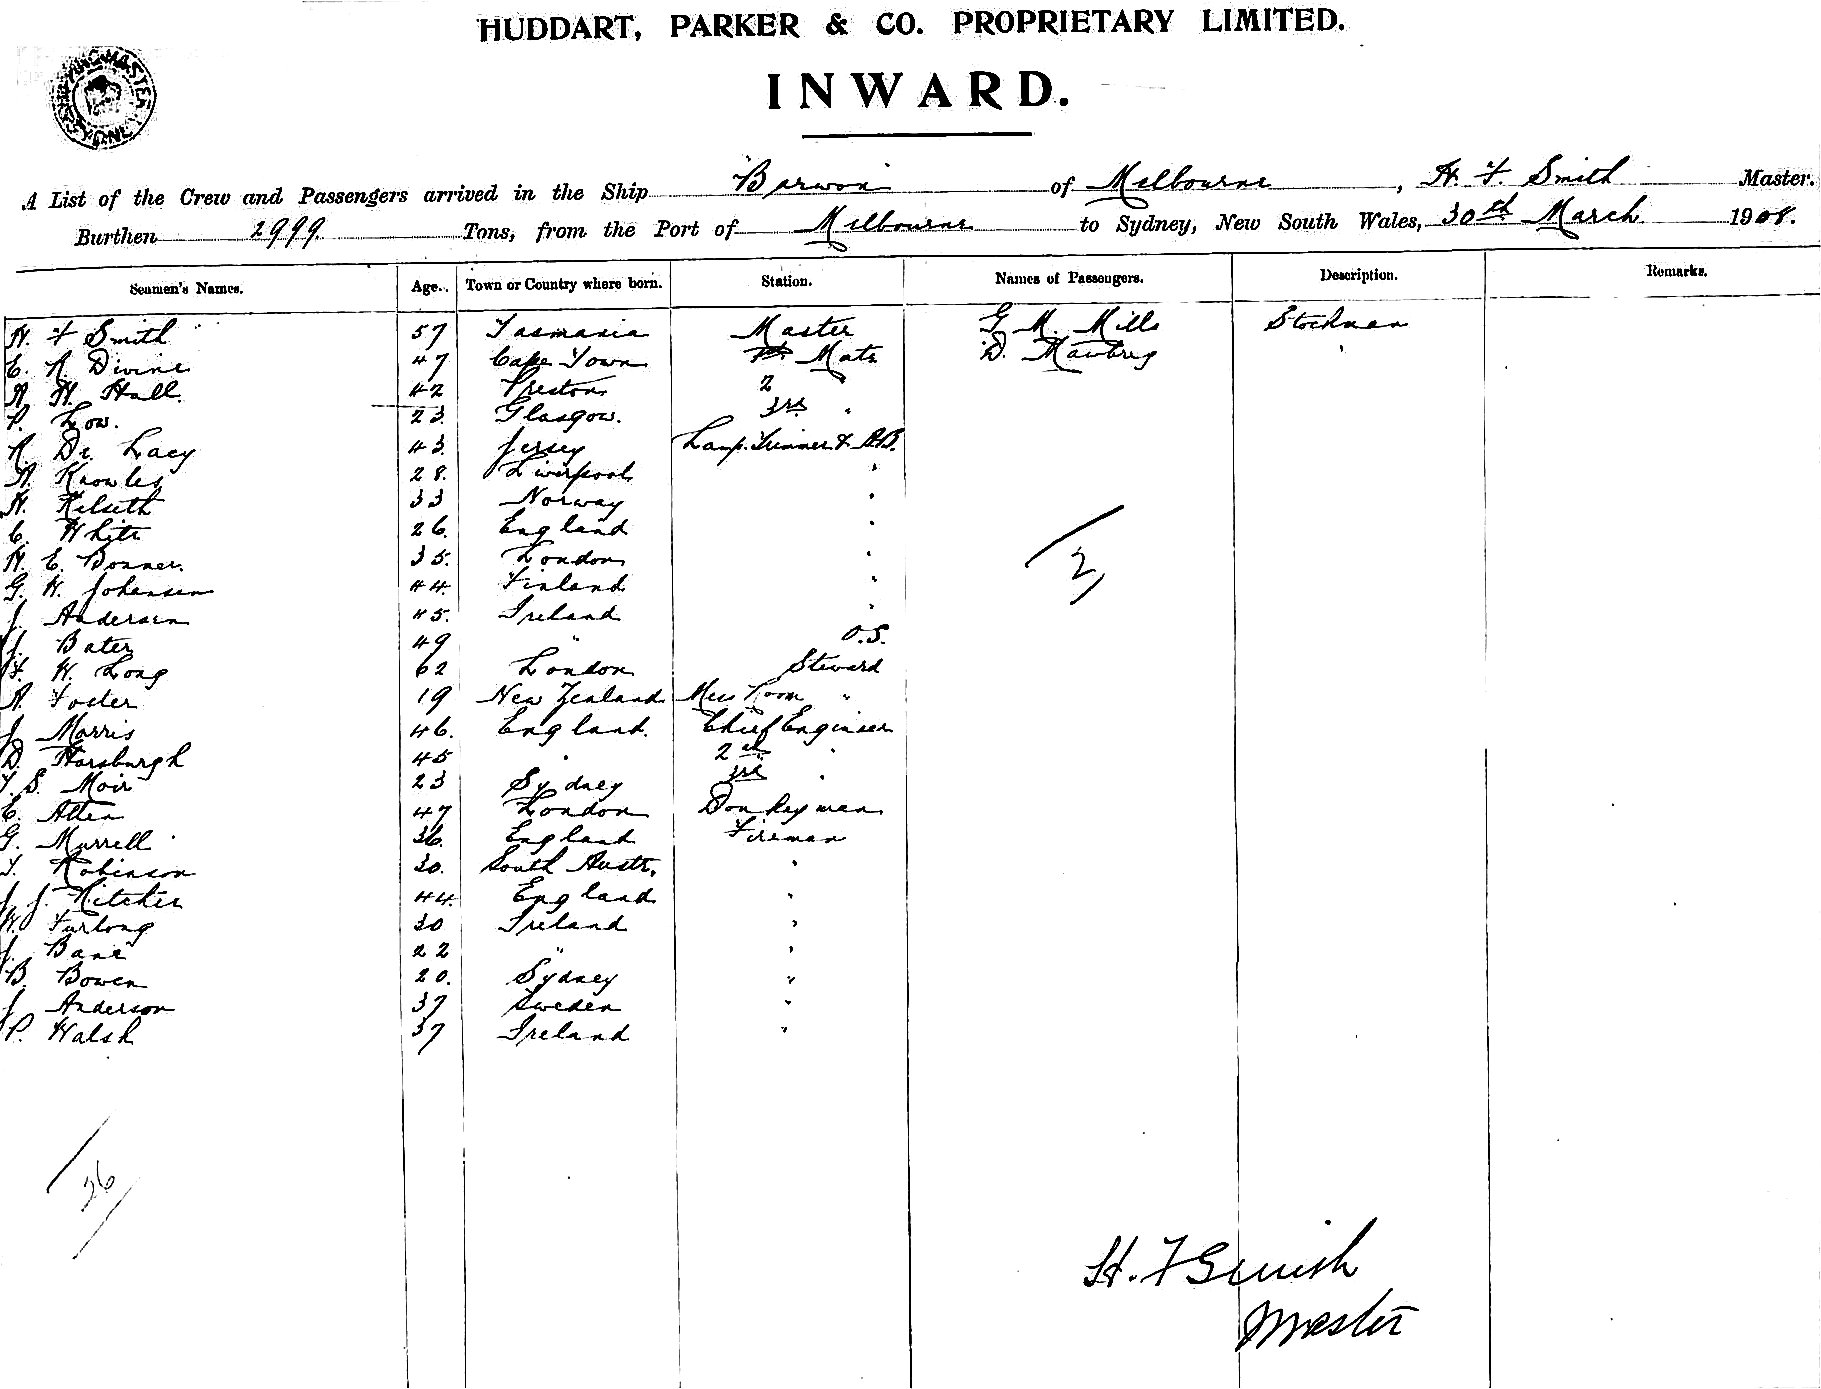 HUDDART, PARKER & CO. PROPRIETARY LIMITED.
INWARD.
A List of the Crew and Passengers arrived in the Ship Barwon of Melbourne, H. F. Smith Master.
Burthen 2999. Tons, from the Port of Melbourne to Sydney, New South Wales, 30th March 1908.
Seamen's Names. Age. Town or Country where born. Station. Names of Passengers. Description. Remarks.
H. F Smith 57 Tasmania Master G. M. Mills Stockman
E. A. Divine 47 Cape Town Mate D. "
A. H. Hall. 42 Preston 2
P. Low. 23. Glasgow. 3rd "
A. De Lacy 43. Jersey Lamp. Trimmer & A.B.
A. Knowles 28. Liverpool "
H. 33 Norway "
C. White 26. England "
H. E. Bonner. 35. London "
G. W. Johansen 44. Finland "
J. Andersen 45. Ireland "
J. Bater 49 " O.S.
F. W. Long 62 London Steward
A. Foster 19 New Zealand Mess Room "
J. Morris 46. England. Chief Engineer
D. Horsburgh 45 " 2nd "
T. S. Moir 23 Sydney 3rd "
C. Allen 47 London Donkeyman
G. Murrell 36. England Fireman
T. Robinson 30. South Austr. "
J. J. Kitcher 44. England "
W. Furlong 30 Ireland "
J. Bane 22 " "
B. Bowen 20. Sydney "
J. Anderson 37 Sweden "
P. Walsh 37 Ireland "
2
26
H. F Smith
Master